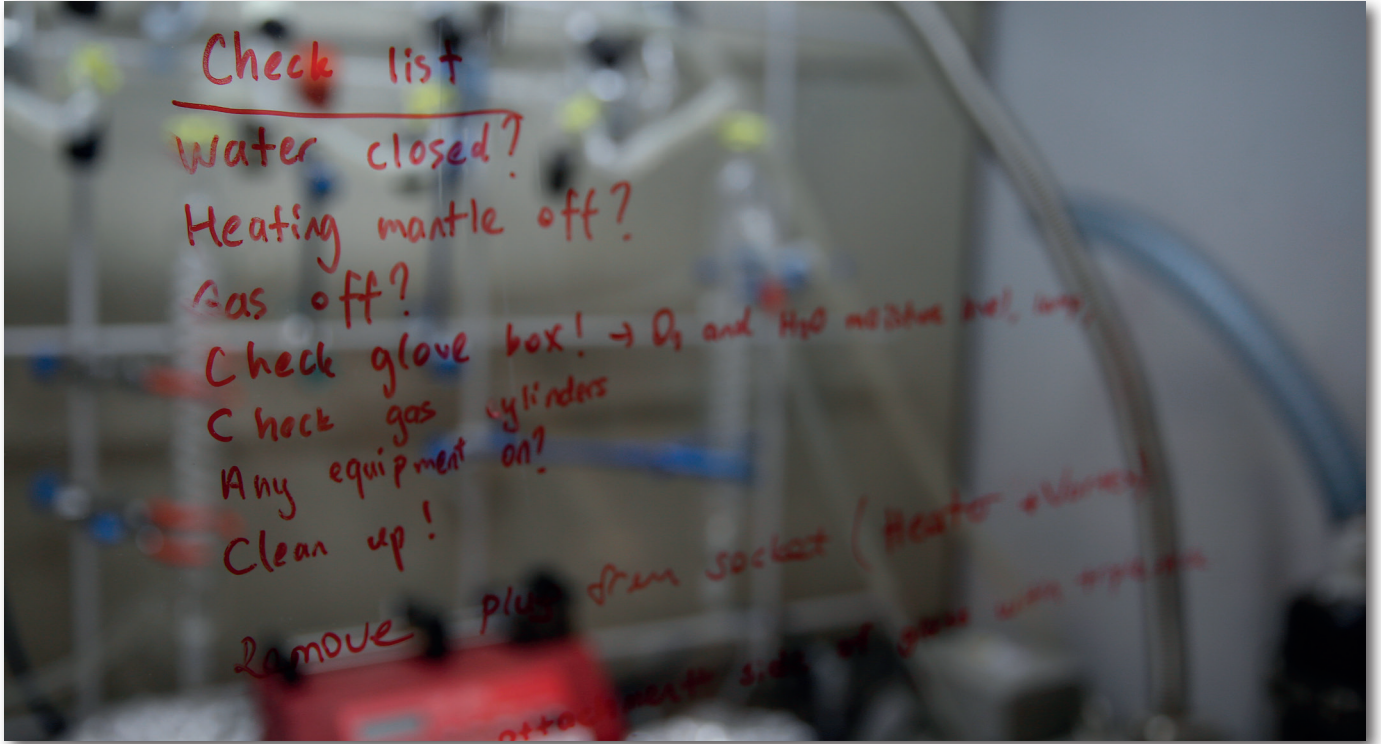 Check list
Water closed?
Heating mantle off?
Gas off?
Check glove box! → O₂ and H₂O
Check gas cylinders
Any equipment on?
Clean up!
Remove plug from socket (Heater
attachment side of glass with